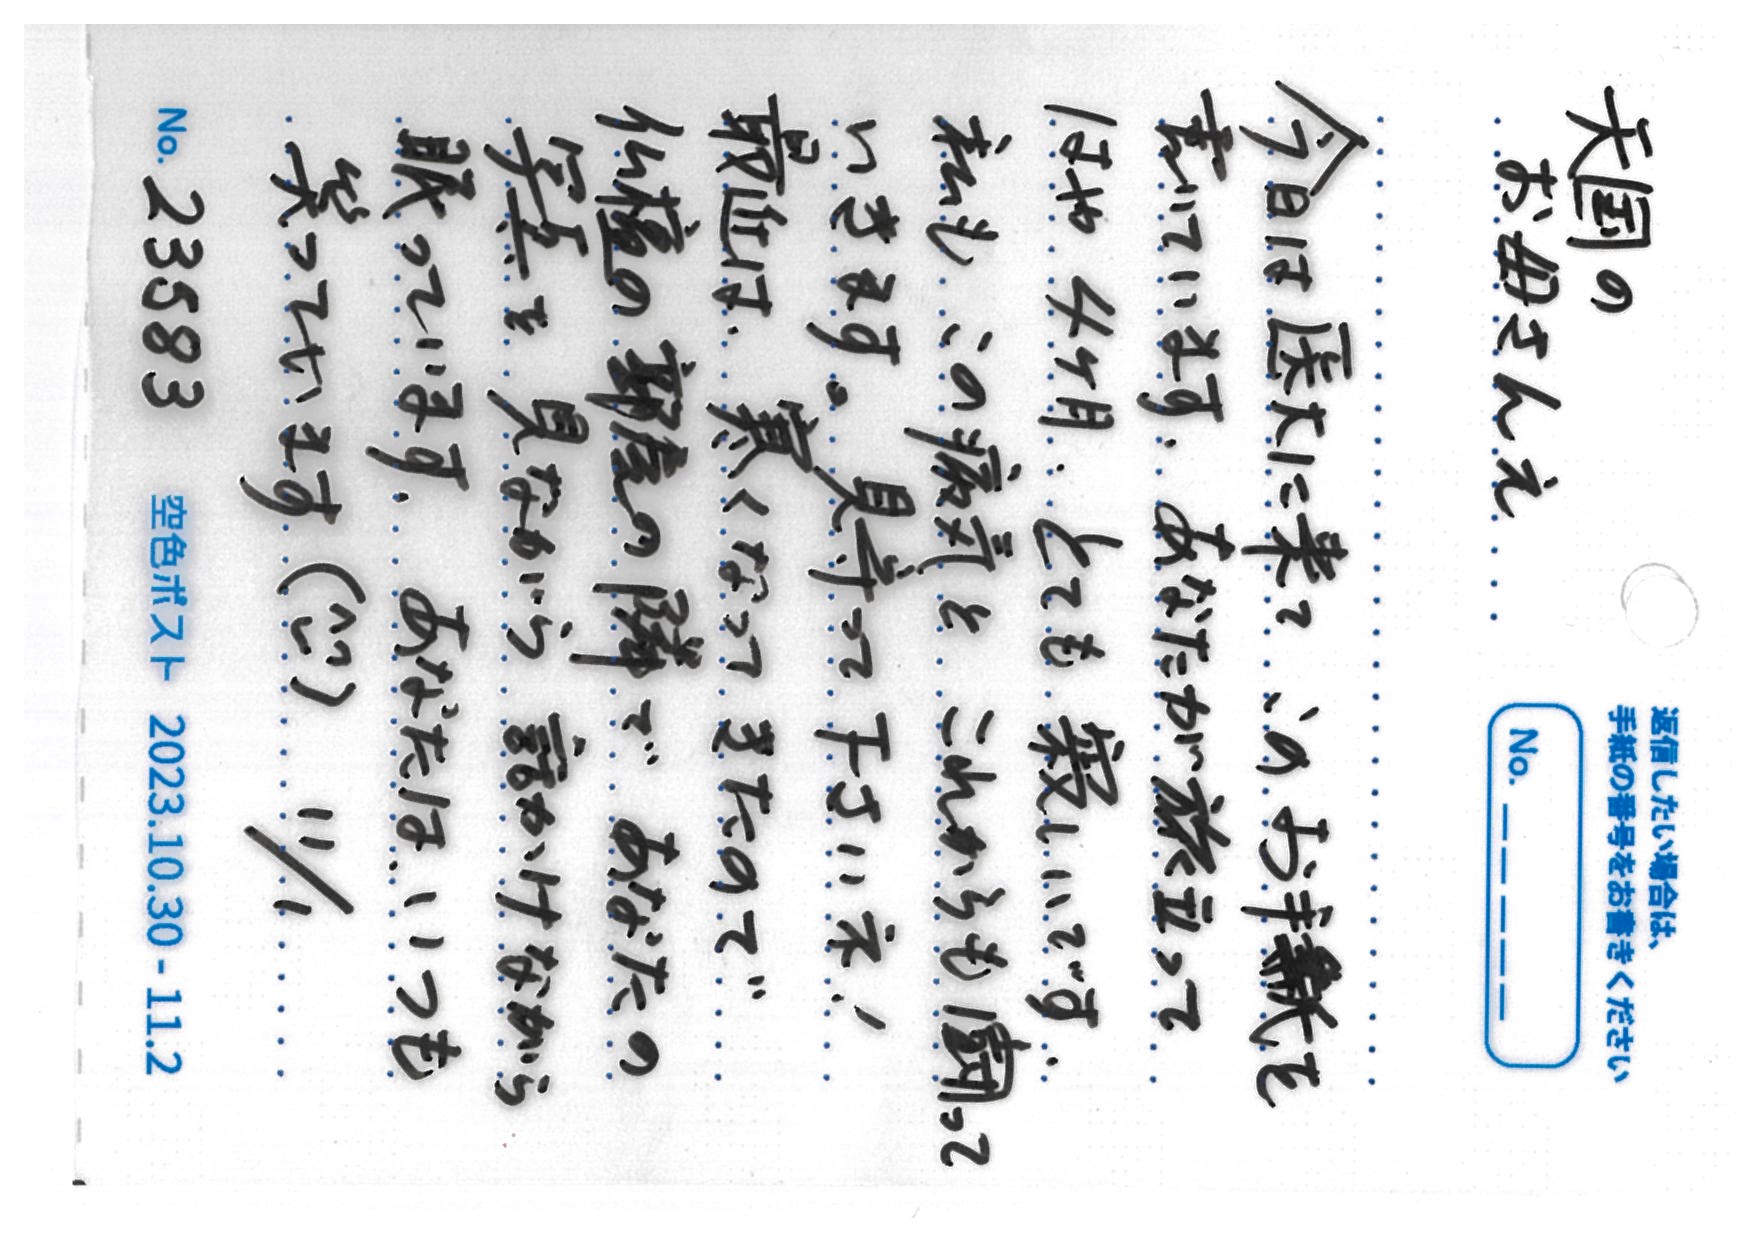 返信したい場合は、
手紙の番号をお書きください
No. _ _ _ _ _
天国の
お母さんえ
今日は医大に来て このお手紙を
書いています。あなたが旅立って
はや4ケ月、とても寂しいです。
私も この病気と これからも闘って
いきます。見守って下さいネ!
最近は、寒くなってきたので
仏檀の部屋の隣で あなたの
写真を 見ながら 話かけながら
眠っています。 あなたは、いつも
笑っています(^^) 11/1
No. 23583 空色ポスト 2023.10.30 - 11.2